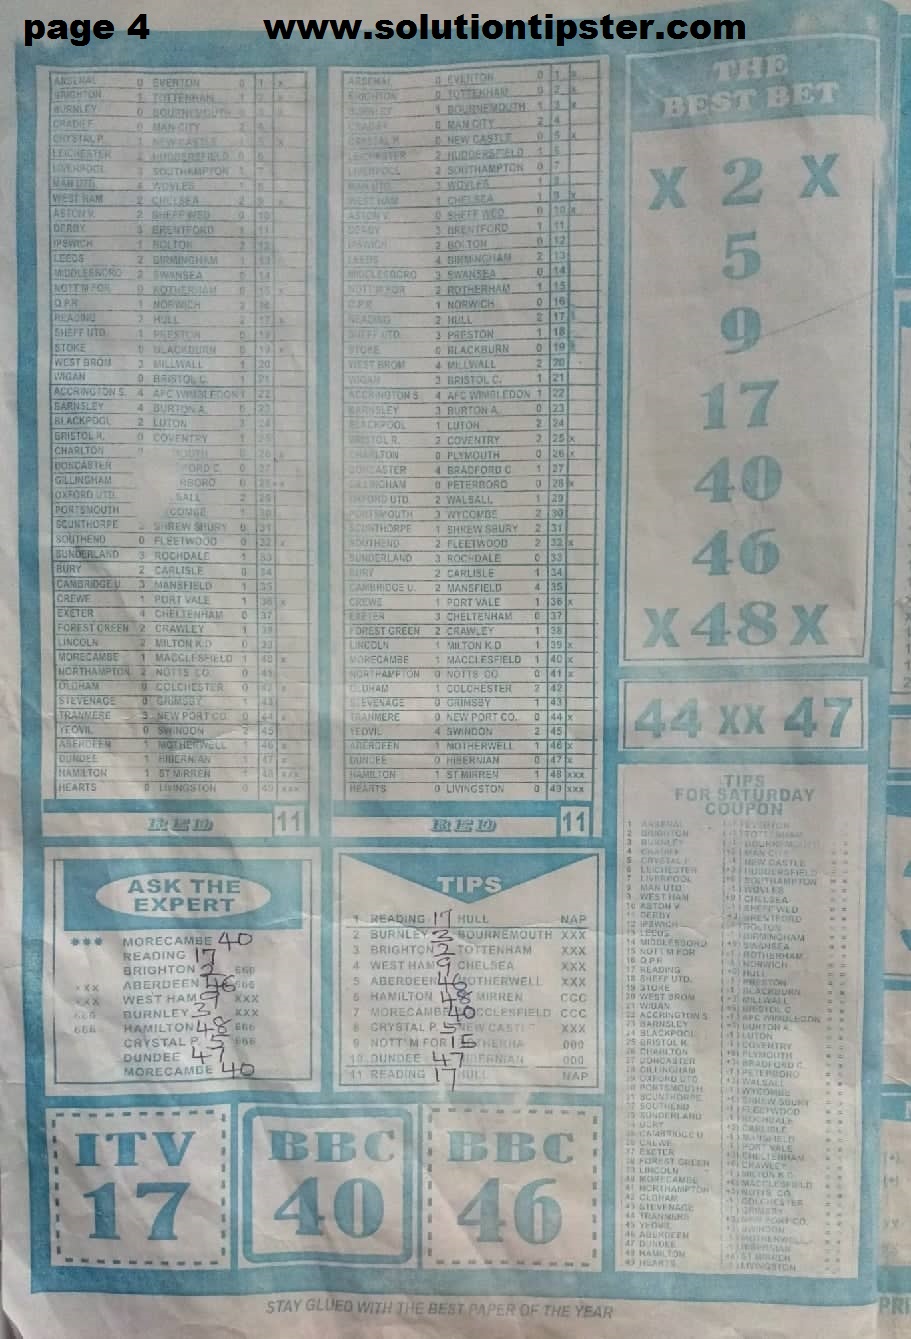 page 4 www.solutiontipster.com
ARSENAL 0 EVERTON 0 1 X
BRIGHTON TOTTENHAM
BURNLEY BOURNEMOUTH
CRADIFF 0 MAN CITY 2 4
CRYSTAL P. NEW CASTLE
LEICHESTER 2 HUDDERSFIELD
LIVERPOOL 3 SOUTHAMPTON 1
MAN UTD. WOVLES
WEST HAM 2 CHELSEA 2 9 X
ASTON V. 2 SHEFF WED 0 10
DERBY 3 BRENTFORD 1 11
IPSWICH 1 BOLTON 2 12
LEEDS 2 BIRMINGHAM 1 13
MIDDLESBORO 2 SWANSEA 0 14
NOTT'M FOR 0 ROTHERHAM 0 15 X
Q.P.R 1 NORWICH 2 16
READING 2 HULL 2 17 X
SHEFF UTD. 1 PRESTON 0 18
STOKE 0 BLACKBURN 0 19 X
WEST BROM 3 MILLWALL 1 20
WIGAN 0 BRISTOL C. 1 21
ACCRINGTON S. 4 AFC WIMBLEDON 1 22
BARNSLEY 4 BURTON A. 0 23
BLACKPOOL 2 LUTON 3 24
BRISTOL R. 0 COVENTRY 1 25
CHARLTON
DONCASTER
GILLINGHAM
OXFORD UTD.
PORTSMOUTH
SCUNTHORPE SHREW SBURY 0 31
SOUTHEND 0 FLEETWOOD 0 32 X
SUNDERLAND 3 ROCHDALE 1 33
BURY 2 CARLISLE 0 34
CAMBRIDGE U. 3 MANSFIELD 1 35
CREWE 1 PORT VALE 1 36 X
EXETER 4 CHELTENHAM 0 37
FOREST GREEN 2 CRAWLEY 1 38
LINCOLN 2 MILTON K.D 0 39
MORECAMBE 1 MACCLESFIELD 1 40 X
NORTHAMPTON 2 NOTTS CO. 0 41
OLDHAM 0 COLCHESTER 0 42 X
STEVENAGE 0 GRIMSBY 1 43
TRANMERE 3 NEW PORT CO. 44
YEOVIL 0 SWINDON 2 45
ABERDEEN 1 MOTHERWELL 1 46 X
DUNDEE 1 HIBERNIAN 1 47 X
HAMILTON 1 ST MIRREN 1 48 XXX
HEARTS 0 LIVINGSTON 0 49 XXX
RED 11
ARSENAL 0 EVERTON 0 1 X
BRIGHTON 0 TOTTENHAM 0 2 X
BURNLEY 1 BOURNEMOUTH 1 3 X
CRADIFF 0 MAN CITY 2 4
CRYSTAL P. 0 NEW CASTLE 0 5 X
LEICHESTER 2 HUDDERSFIELD 1 6
LIVERPOOL 2 SOUTHAMPTON 0 7
MAN UTD. 3 WOVLES 1 8
WEST HAM 1 CHELSEA 1 9 X
ASTON V. 0 SHEFF WED 0 10 X
DERBY 3 BRENTFORD 1 11
IPSWICH 2 BOLTON 0 12
LEEDS 4 BIRMINGHAM 2 13
MIDDLESBORO 3 SWANSEA 0 14
NOTT'M FOR 2 ROTHERHAM 1 15
Q.P.R 1 NORWICH 0 16
READING 2 HULL 2 17
SHEFF UTD. 3 PRESTON 1 18
STOKE 0 BLACKBURN 0 19
WEST BROM 4 MILLWALL 2 20
WIGAN 3 BRISTOL C. 1 21
ACCRINGTON S. 4 AFC WIMBLEDON 1 22
BARNSLEY 3 BURTON A. 0 23
BLACKPOOL 1 LUTON 2 24
BRISTOL R. 2 COVENTRY 2 25 X
CHARLTON 0 PLYMOUTH 0 26 X
DONCASTER 4 BRADFORD C. 1 27
GILLINGHAM 0 PETERBORO 0 28 X
OXFORD UTD. 2 WALSALL 1 29
PORTSMOUTH 3 WYCOMBE 2 30
SCUNTHORPE 1 SHREW SBURY 2 31
SOUTHEND 2 FLEETWOOD 2 32 X
SUNDERLAND 3 ROCHDALE 0 33
BURY 2 CARLISLE 1 34
CAMBRIDGE U. 2 MANSFIELD 4 35
CREWE 1 PORT VALE 1 36 X
EXETER 3 CHELTENHAM 0 37
FOREST GREEN 2 CRAWLEY 1 38
LINCOLN 1 MILTON K.D 1 39 X
MORECAMBE 1 MACCLESFIELD 1 40 X
NORTHAMPTON 0 NOTTS CO. 0 41 X
OLDHAM 1 COLCHESTER 2 42
STEVENAGE 0 GRIMSBY 1 43
TRANMERE 0 NEW PORT CO. 0 44 X
YEOVIL 4 SWINDON 2 45
ABERDEEN 1 MOTHERWELL 1 46 X
DUNDEE 0 HIBERNIAN 0 47 X
HAMILTON 1 ST MIRREN 1 48 XXX
HEARTS 0 LIVINGSTON 0 49 XXX
RED 11
THE
BEST BET
X 2 X
5
9
17
40
46
X 48 X
44 XX 47
ASK THE
EXPERT
*** MORECAMBE 40
READING 17
BRIGHTON 2 666
XXX ABERDEEN 46 666
XXX WEST HAM 9 XXX
666 BURNLEY 3 XXX
666 HAMILTON 48 666
CRYSTAL P. 5 666
DUNDEE 47
MORECAMBE 40
TIPS
1 READING 17 HULL NAP
2 BURNLEY 3 BOURNEMOUTH XXX
3 BRIGHTON 2 TOTTENHAM XXX
4 WEST HAM 9 CHELSEA XXX
5 ABERDEEN 46 MOTHERWELL XXX
6 HAMILTON 48 MIRREN CCC
7 MORECAMBE 40 MACCLESFIELD CCC
8 CRYSTAL P. 5 NEW CASTLE XXX
9 NOTT'M FOR 15 ROTHERHA 000
10 DUNDEE 47 HIBERNIAN 000
11 READING 17 HULL NAP
ITV
17
BBC
40
BBC
46
TIPS
FOR SATURDAY
COUPON
1 ARSENAL EVERTON
2 BRIGHTON TOTTENHAM
3 BURNLEY BOURNEMOUTH
4 CRADIFF MAN CITY
5 CRYSTAL P. NEW CASTLE
6 LEICHESTER HUDDERSFIELD
7 LIVERPOOL SOUTHAMPTON
8 MAN UTD. WOVLES
9 WEST HAM CHELSEA
10 ASTON V. SHEFF WED
11 DERBY BRENTFORD
12 IPSWICH BOLTON
13 LEEDS BIRMINGHAM
14 MIDDLESBORO SWANSEA
15 NOTT'M FOR ROTHERHAM
16 Q.P.R NORWICH
17 READING HULL
18 SHEFF UTD. PRESTON
19 STOKE BLACKBURN
20 WEST BROM MILLWALL
21 WIGAN BRISTOL C.
22 ACCRINGTON S. AFC WIMBLEDON
23 BARNSLEY BURTON A.
24 BLACKPOOL LUTON
25 BRISTOL R. COVENTRY
26 CHARLTON PLYMOUTH
27 DONCASTER BRADFORD C.
28 GILLINGHAM PETERBORO
29 OXFORD UTD WALSALL
30 PORTSMOUTH WYCOMBE
31 SCUNTHORPE SHREW SBURY
32 SOUTHEND FLEETWOOD
33 SUNDERLAND ROCHDALE
34 BURY CARLISLE
35 CAMBRIDGE U. MANSFIELD
36 CREWE PORT VALE
37 EXETER CHELTENHAM
38 FOREST GREEN CRAWLEY
39 LINCOLN MILTON K.D
40 MORECAMBE MACCLESFIELD
41 NORTHAMPTON NOTTS CO.
42 OLDHAM COLCHESTER
43 STEVENAGE GRIMSBY
44 TRANMERE NEW PORT CO.
45 YEOVIL SWINDON
46 ABERDEEN MOTHERWELL
47 DUNDEE HIBERNIAN
48 HAMILTON ST MIRREN
49 HEARTS LIVINGSTON
STAY GLUED WITH THE BEST PAPER OF THE YEAR